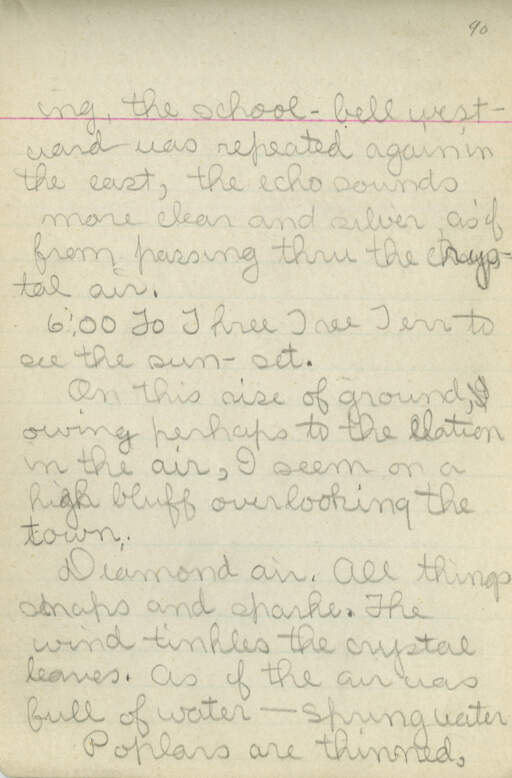 90
ing, the school-bell west-
ward was repeated again in
the east, the echo sounds
more clear and silver, as if
from passing thru the crys-
tal air.
6:00 To Three Tree Terr to
see the sun-set.
On this rise of ground,
owing perhaps to the elation
in the air, I seem on a
high bluff overlooking the
town.
Diamond air. All things
snaps and sparke. The
wind tinkles the crystal
leaves. As if the air was
full of water — Spring water
Poplars are thinned.